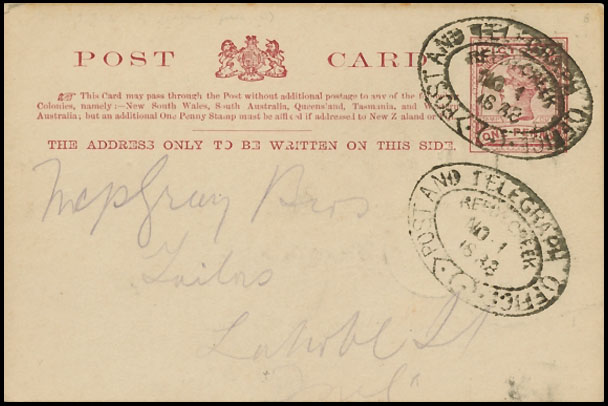 POST CARD
☞ This Card may pass through the Post without additional postage to any of the
Colonies, namely:—New South Wales, South Australia, Queensland, Tasmania, and
Australia; but an additional One Penny Stamp must be affixed if addressed to New Zealand or
THE ADDRESS ONLY TO BE WRITTEN ON THIS SIDE.
POST AND TELEGRAPH OFFICE
CREEK
NO 1
ONE
POST AND TELEGRAPH OFFICE
CREEK
NO 1
Gray Bros
Tailors
St